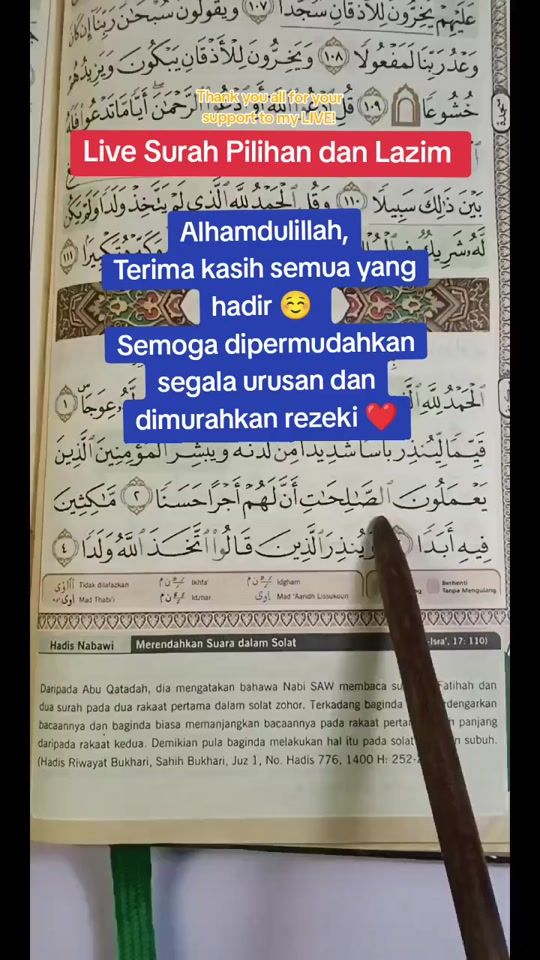 عَلَيْهِمْ يَخِرُّونَ لِلْأَذْقَانِ سُجَّدًا ١٠٧ وَيَقُولُونَ سُبْحَٰنَ رَبِّنَا إِن كَانَ
وَعْدُ رَبِّنَا لَمَفْعُولًا ١٠٨ وَيَخِرُّونَ لِلْأَذْقَانِ يَبْكُونَ وَيَزِيدُهُمْ
خُشُوعًا ١٠٩ قُلِ ادْعُوا۟ اللَّهَ أَوِ ادْعُوا۟ الرَّحْمَٰنَ أَيًّا مَّا تَدْعُوا۟ فَلَهُ
Thank you all for your
support to my LIVE!
Live Surah Pilihan dan Lazim
بَيْنَ ذَٰلِكَ سَبِيلًا ١١٠ وَقُلِ الْحَمْدُ لِلَّهِ الَّذِي لَمْ يَتَّخِذْ وَلَدًا وَلَمْ يَكُن
لَّهُ شَرِيكٌ تَكْبِيرًا ١١١
Alhamdulillah,
Terima kasih semua yang
hadir ☺️
Semoga dipermudahkan
segala urusan dan
dimurahkan rezeki ❤️
الْحَمْدُ لِلَّهِ لَّهُ عِوَجَا ١
قَيِّمًا لِّيُنذِرَ بَأْسًا شَدِيدًا مِّن لَّدُنْهُ وَيُبَشِّرَ الْمُؤْمِنِينَ الَّذِينَ
يَعْمَلُونَ الصَّٰلِحَٰتِ أَنَّ لَهُمْ أَجْرًا حَسَنًا ٢ مَّٰكِثِينَ
فِيهِ أَبَدًا وَيُنذِرَ الَّذِينَ قَالُوا۟ اتَّخَذَ اللَّهُ وَلَدًا ٤
Tidak dilafazkan Ikhfa' Idgham Berhenti
Mad Thabi'i Idzhar Mad 'Aaridh Lissukuun Tanpa Mengulang
Hadis Nabawi Merendahkan Suara dalam Solat 17: 110)
Daripada Abu Qatadah, dia mengatakan bahawa Nabi SAW membaca Fatihah dan
dua surah pada dua rakaat pertama dalam solat zohor. Terkadang baginda
bacaannya dan baginda biasa memanjangkan bacaannya pada rakaat panjang
daripada rakaat kedua. Demikian pula baginda melakukan hal itu pada solat subuh.
(Hadis Riwayat Bukhari, Sahih Bukhari, Juz 1, No. Hadis 776, 1400 H: